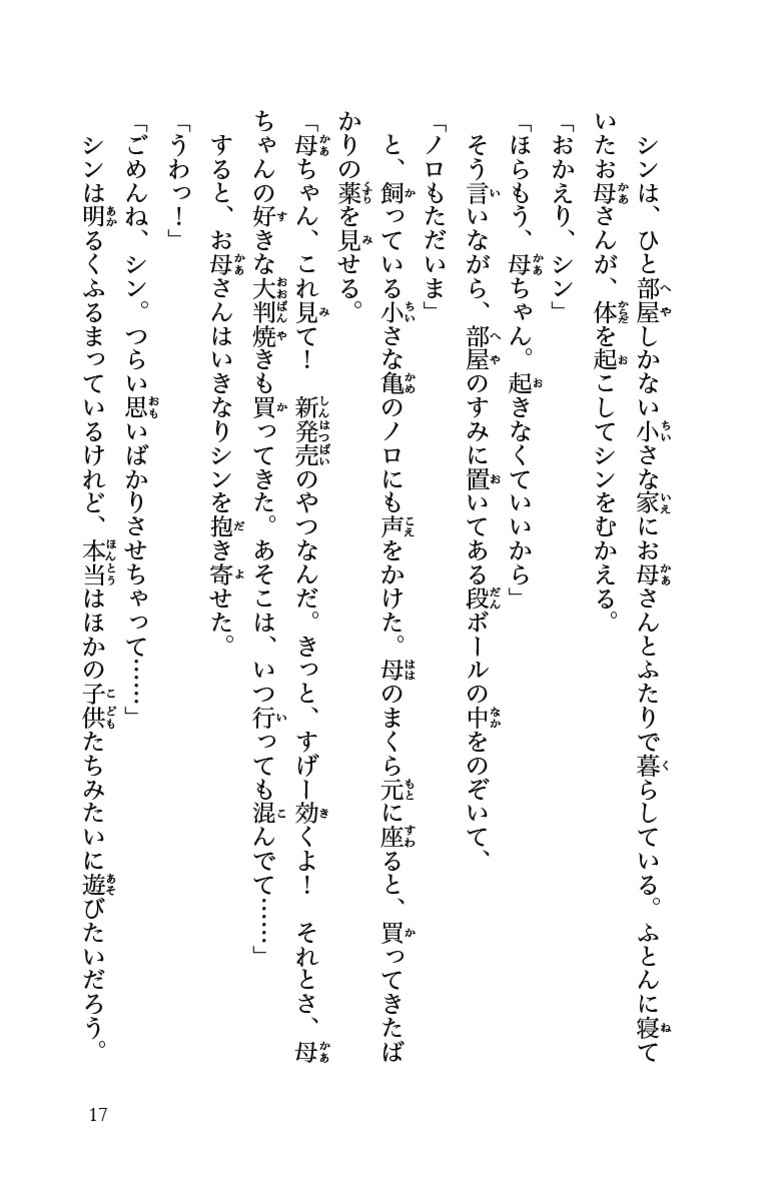 シンは、ひと部屋しかない小さな家にお母さんとふたりで暮らしている。ふとんに寝て
いたお母さんが、体を起こしてシンをむかえる。
「おかえり、シン」
「ほらもう、母ちゃん。起きなくていいから」
そう言いながら、部屋のすみに置いてある段ボールの中をのぞいて、
「ノロもただいま」
と、飼っている小さな亀のノロにも声をかけた。母のまくら元に座ると、買ってきたば
かりの薬を見せる。
「母ちゃん、これ見て！　新発売のやつなんだ。きっと、すげー効くよ！　それとさ、母
ちゃんの好きな大判焼きも買ってきた。あそこは、いつ行っても混んでて……」
すると、お母さんはいきなりシンを抱き寄せた。
「うわっ！」
「ごめんね、シン。つらい思いばかりさせちゃって……」
シンは明るくふるまっているけれど、本当はほかの子供たちみたいに遊びたいだろう。
17